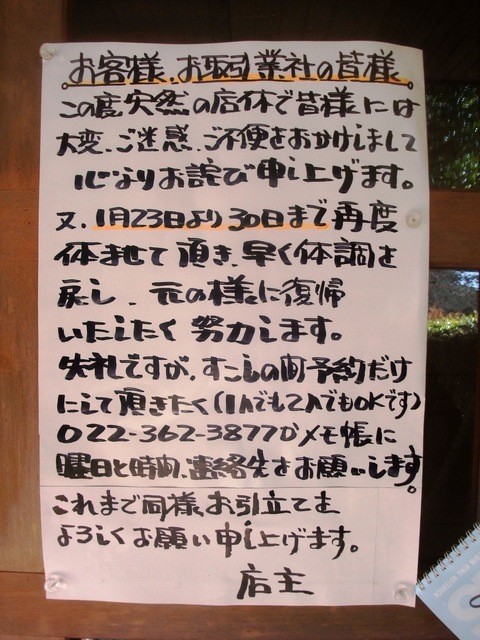 お客様、お取引業社の皆様
この度、突然の店休で皆様には
大変、ご迷惑、ご不便をおかけしまして
心よりお詫び申し上げます。
又、1月23日より30日まで再度
休ませて頂き、早く体調を
戻し、元の様に復帰
いたしたく努力します。
失礼ですが、すこしの間予約だけ
にして頂きたく(1人でも2人でもOKです)
022-362-3877かメモ帳に
曜日と時間、連絡先をお願いします。
これまで同様、お引立てを
よろしくお願い申し上げます。
店主